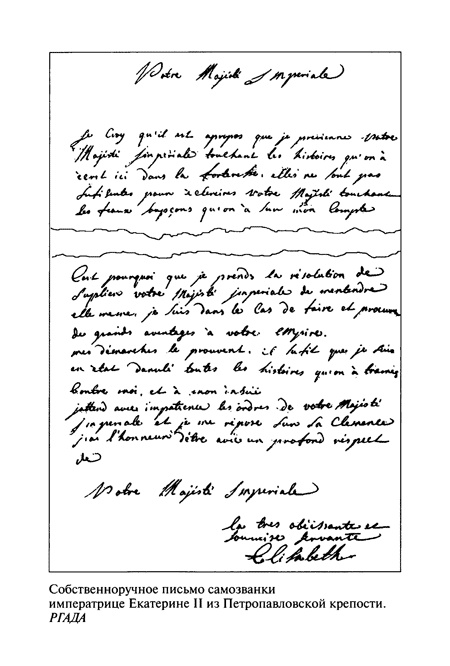 Votre Majesté Imperiale
Je Croy qu'il est apropos que je previenne Votre
Majesté jmpériale touchant les histoires qu'on à
ecrit ici dans la forteresse. elles ne sont pas
sufisentes pour eclercires votre Majésté touchant
les feaux supsçons qu'on à sur mon Compte
C'est pourquoi que je prends la résolution de
Suplier votre Majésté jmperiale de m'entendre
elle meme, je suis dans le Cas de faire et procurer
de grands aventages à votre Empire.
mes démarches le prouvent. il sufit que je suis
en état d'anulé toutes les histoires qu'on à tramées
Contre moi, et à mon insue
j'attend avec impatience les ordres de votre Majésté
jmperiale et je me repose sur sa Clemence
j'ai l'honneur d'être avec un profond réspect
de
Votre Majésté Imperiale
la tres obéissante et
soumise servante
Elisabeth
Собственноручное письмо самозванки
императрице Екатерине II из Петропавловской крепости.
РГАДА